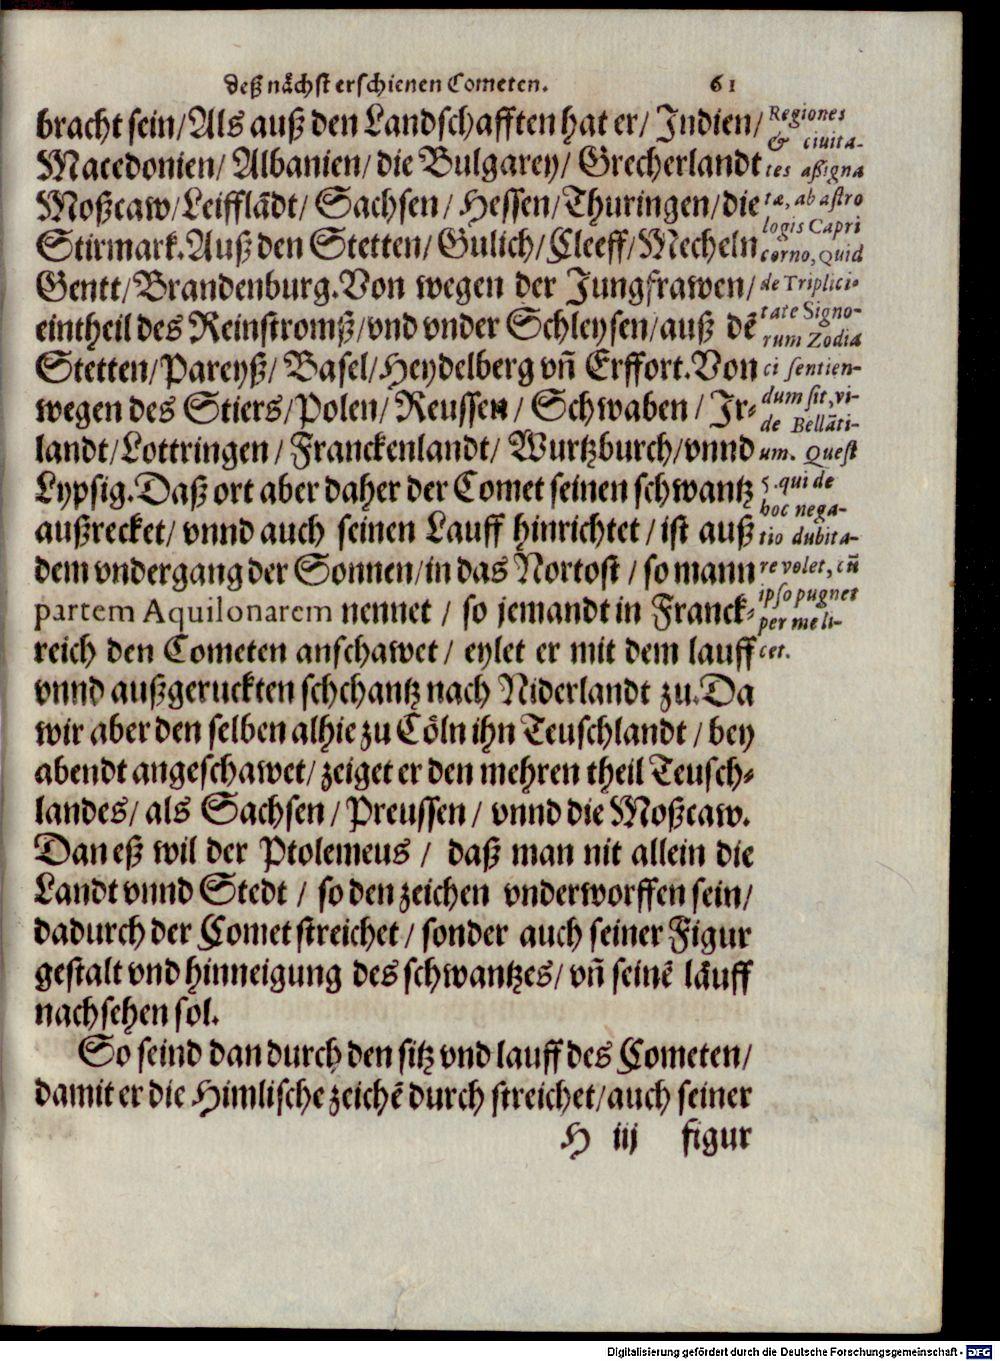 deß nåchst erschienen Cometen. 61
bracht sein/Als auß den Landschafften hat er/ Indien/
Macedonien/ Albanien/ die Bulgarey/ Grecherlandt
Moßcaw/Leifflãdt/ Sachsen/ Hessen/Thuringen/die
Stirmark.Auß den Stetten/ Gulich/Cleeff/Mecheln
Gentt/Brandenburg.Von wegen der Jungfrawen/
eintheil des Reinstromß/vnd vnder Schleysen/auß dẽ
Stetten/Pareyß/ Basel/Heydelberg vñ Erffort.Von
wegen des Stiers/Polen/ Reussen/ Schwaben / Ir-
landt/Lottringen/ Franckenlandt/ Wurtzburch/vnnd
Lypsig.Daß ort aber daher der Comet seinen schwantz
außrecket/ vnnd auch seinen Lauff hinrichtet/ist auß
dem vndergang der Sonnen/in das Nortost / so mann
partem Aquilonarem nennet / so jemandt in Franck-
reich den Cometen anschawet/ eylet er mit dem lauff
vnnd außgeruckten schchantz nach Niderlandt zu.Da
wir aber den selben alhie zu Cöln ihn Teuschlandt / bey
abendt angeschawet/zeiget er den mehren theil Teusch-
landes/ als Sachsen/Preussen/ vnnd die Moßcaw.
Dan eß wil der Ptolemeus / daß man nit allein die
Landt vnnd Stedt / so den zeichen vnderworffen sein/
dadurch der Comet streichet/ sonder auch seiner Figur
gestalt vnd hinneigung des schwantzes/ vñ seinẽ läuff
nachsehen sol.
So seind dan durch den sitz vnd lauff des Cometen/
damit er die Himlische zeichẽ durch streichet/auch seiner
H iij figur
Regiones
& ciuita-
tes aßigna
tæ, ab astro
logis Capri
corno, Quid
de Triplici-
tate Signo-
rum Zodia
ci sentien-
dum sit, vi-
de Bellãti-
um. Quest
5. qui de
hoc nega-
tio dubita-
re volet, cũ
ipso pugnet
per me li-
cet.
Digitalisierung gefördert durch die Deutsche Forschungsgemeinschaft - DFG